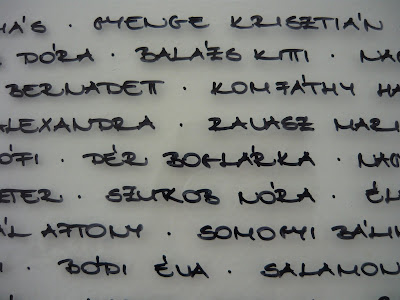 HÁS · GYENGE KRISZTIÁN
DÓRA · BALÁZS KITTI · NAG
BERNADETT · KOMJÁTHY HA
ALEXANDRA · RAVASZ MARI
ÓFI · DÉR BOGLÁRKA · NAG
ETER · SZUKOB NÓRA · ÉL
ÁL AJTONY · SOMOGYI BÁLI
I · BÓDI ÉVA · SALAMON